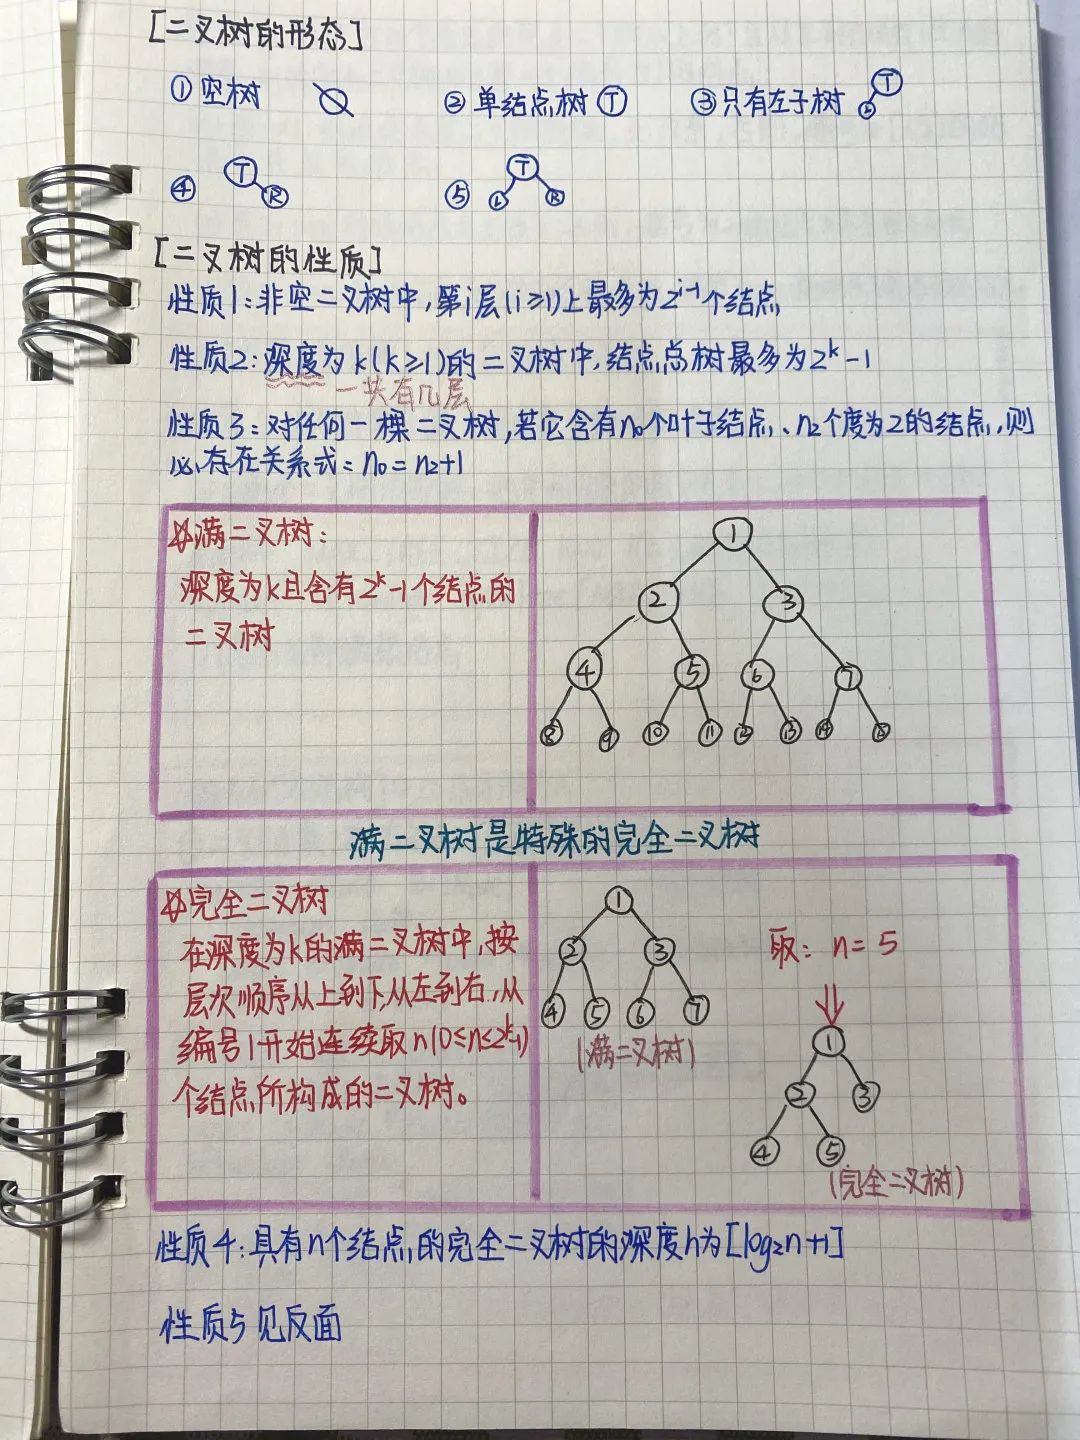 [二叉树的形态]
①空树 ∅ ②单结点树 T ③只有左子树 T L
④ T R ⑤ T L R
[二叉树的性质]
性质1:非空二叉树中,第i层(i≥1)上最多为2^{i-1}个结点
性质2:深度为k(k≥1)的二叉树中,结点总树最多为2^k-1
一共有几层
性质3:对任何一棵二叉树,若它含有n₀个叶子结点、n₂个度为2的结点,则
必存在关系式:n₀=n₂+1
满二叉树:
深度为k且含有2^k-1个结点的
二叉树
1
2 3
4 5 6 7
8 9 10 11 12 13 14 15
满二叉树是特殊的完全二叉树
完全二叉树
在深度为k的满二叉树中,按
层次顺序从上到下从左到右,从
编号1开始连续取n(0≤n≤2^k-1)
个结点所构成的二叉树。
1
2 3
4 5 6 7
(满二叉树)
取: n=5
1
2 3
4 5
(完全二叉树)
性质4:具有n个结点的完全二叉树的深度h为[log₂n+1]
性质5见反面